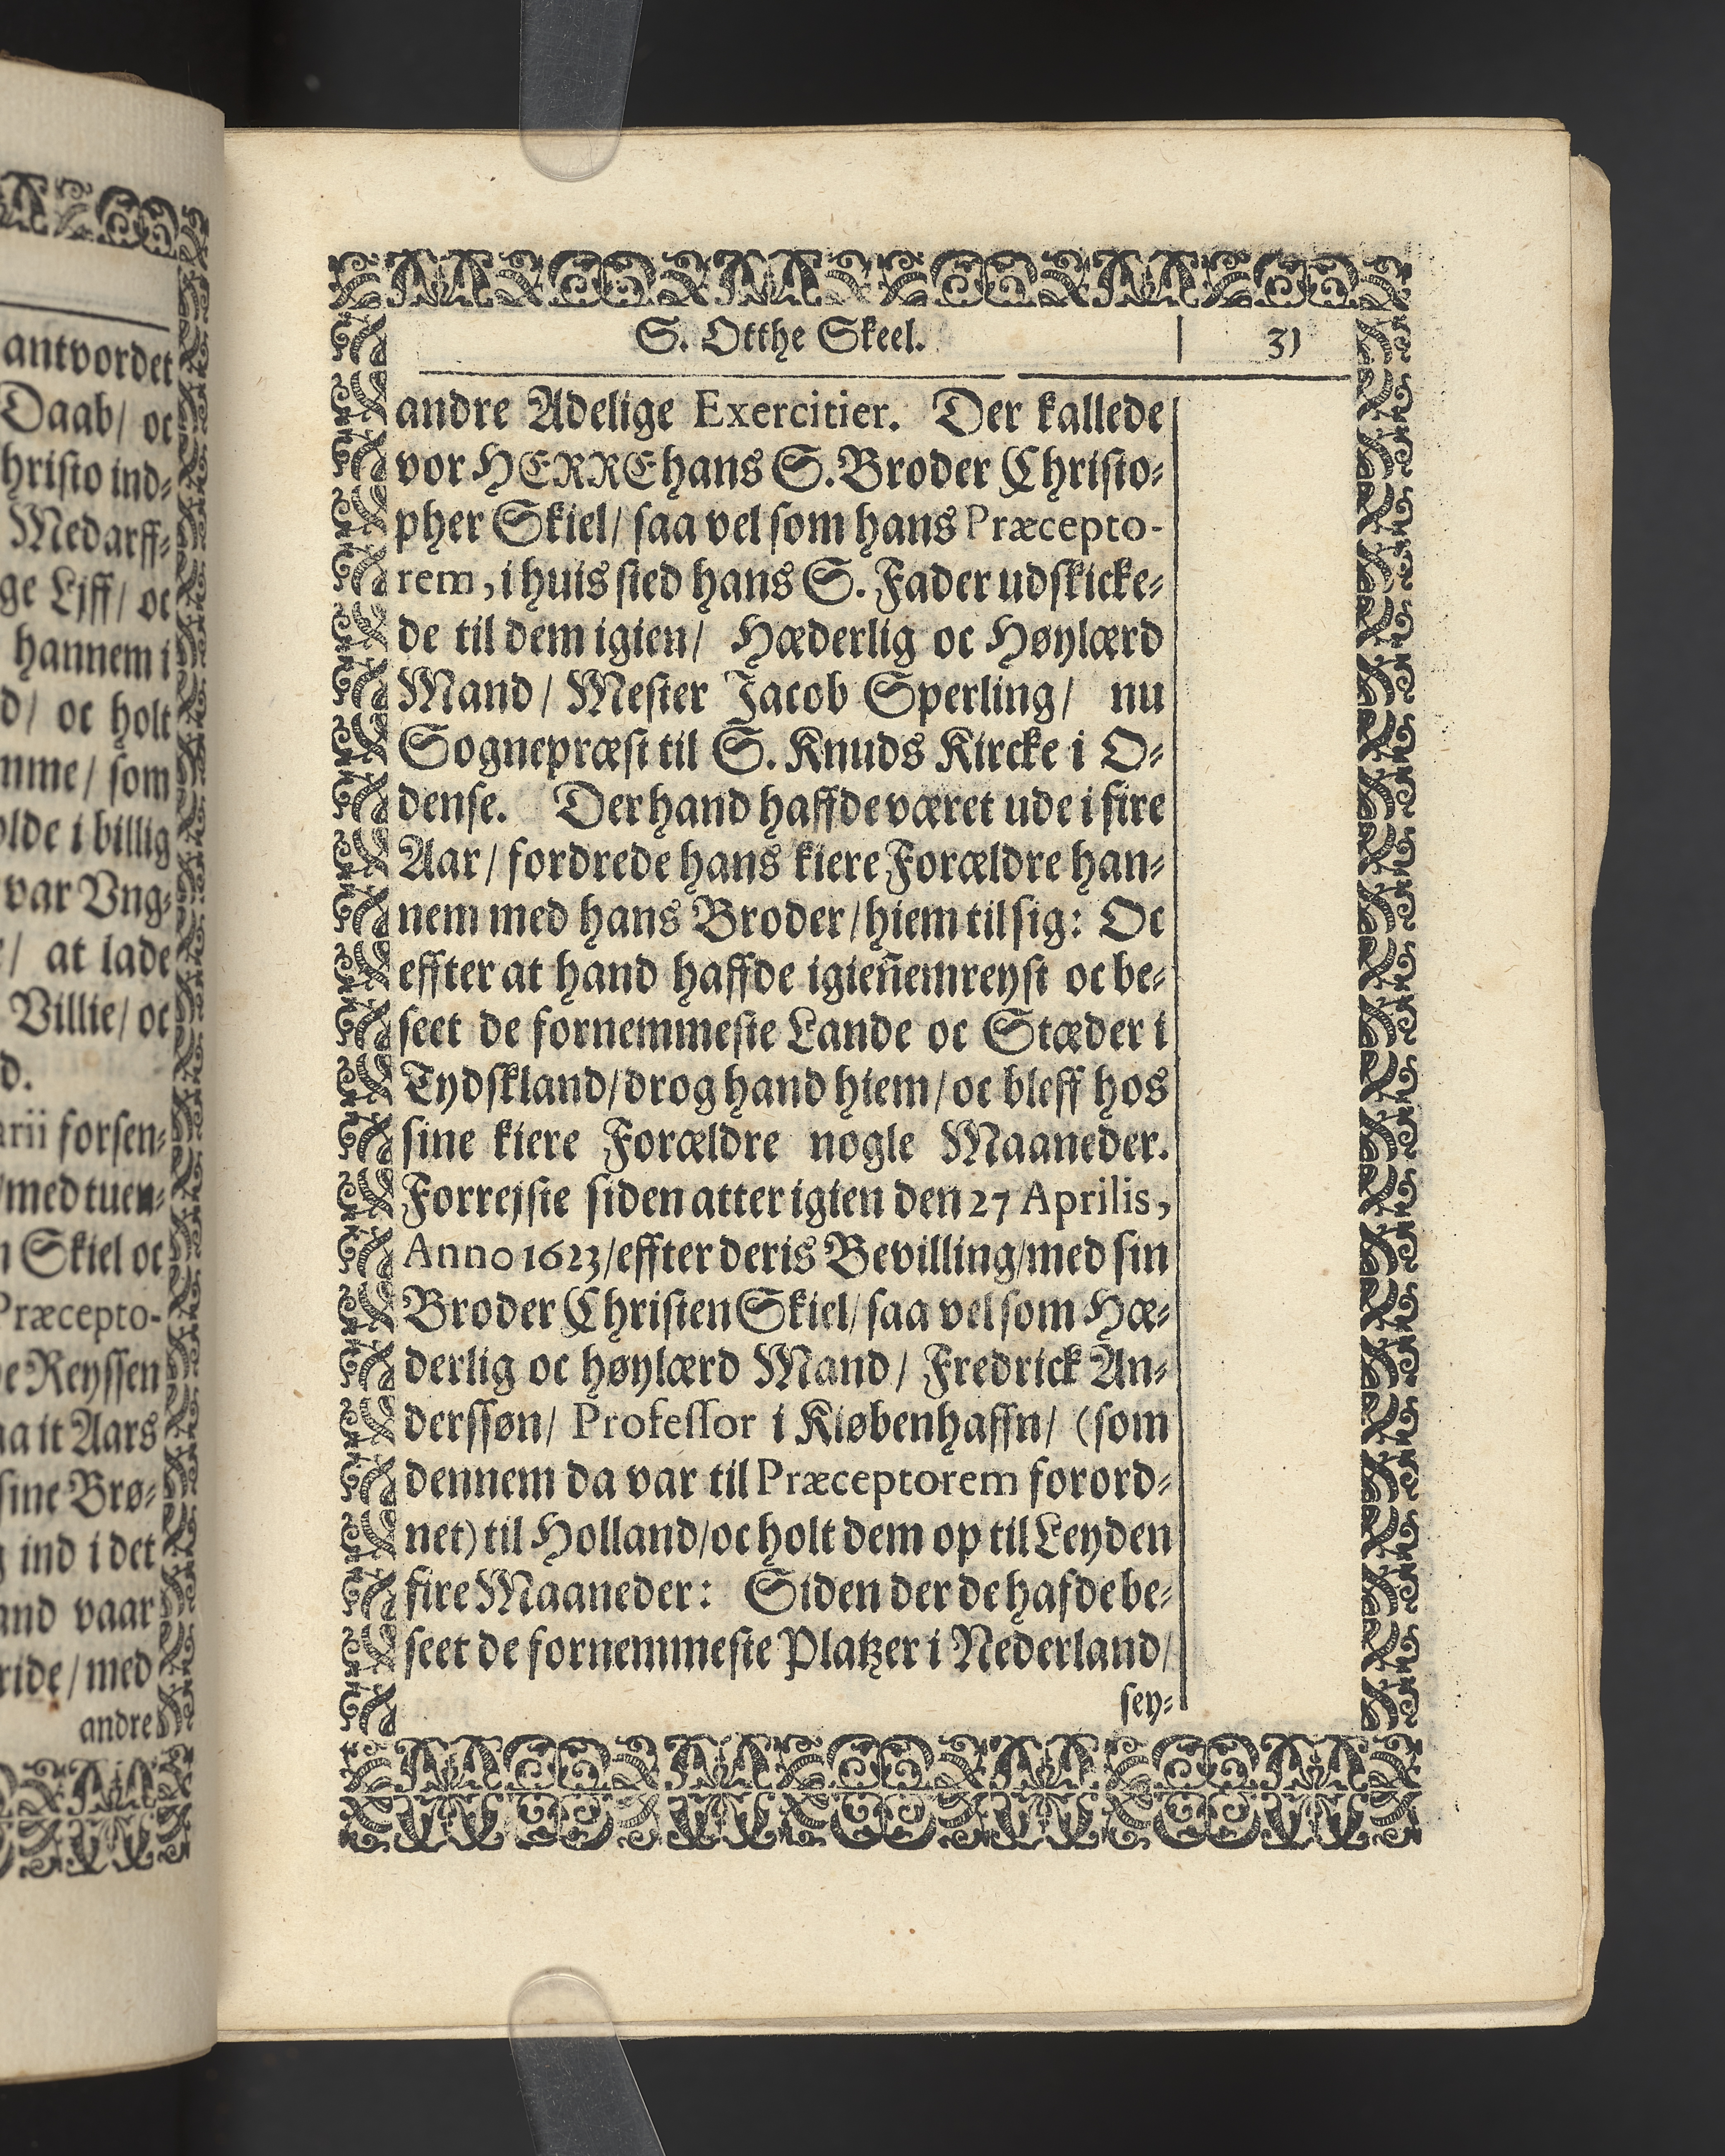 antvordet
Daab/ oc
hristo ind⸗
Medarff⸗
ge Liff/ oc
hannem i
d/ oc holt
mme/ som
olde i billig
var Vng⸗
/ at lade
Villie/ oc
d.
arii forsen⸗
/med tuen⸗
n Skiel oc
Præcepto-
e Reyssen
aa it Aars
sine Brø⸗
g ind i det
and vaar
ride/ med
andre
S. Otthe Skeel. 31
andre Adelige Exercitier. Der kallede
vor HERRE hans S. Broder Christo⸗
pher Skiel/ saa vel som hans Præcepto-
rem, i huis sted hans S. Fader udskicke⸗
de til dem igien/ Hæderlig oc Høylærd
Mand/ Mester Jacob Sperling/ nu
Sognepræst til S. Knuds Kircke i O⸗
dense. Der hand haffde været ude i fire
Aar/ fordrede hans kiere Forældre han⸗
nem med hans Broder/ hiem til sig: Oc
effter at hand haffde igieñemreyst oc be⸗
seet de fornemmeste Lande oc Stæder i
Tydskland/ drog hand hiem/ oc bleff hos
sine kiere Forældre nogle Maaneder.
Forrejste siden atter igien den 27 Aprilis,
Anno 1623/ effter deris Bevilling/ med sin
Broder Christen Skiel/ saa vel som Hæ⸗
derlig oc høylærd Mand/ Fredrick An⸗
derssøn/ Professor i Kiøbenhaffn/ (som
dennem da var til Præceptorem forord⸗
net) til Holland/ oc holt dem op til Leyden
fire Maaneder: Siden der de hafde be⸗
seet de fornemmeste Platzer i Nederland/
sey⸗